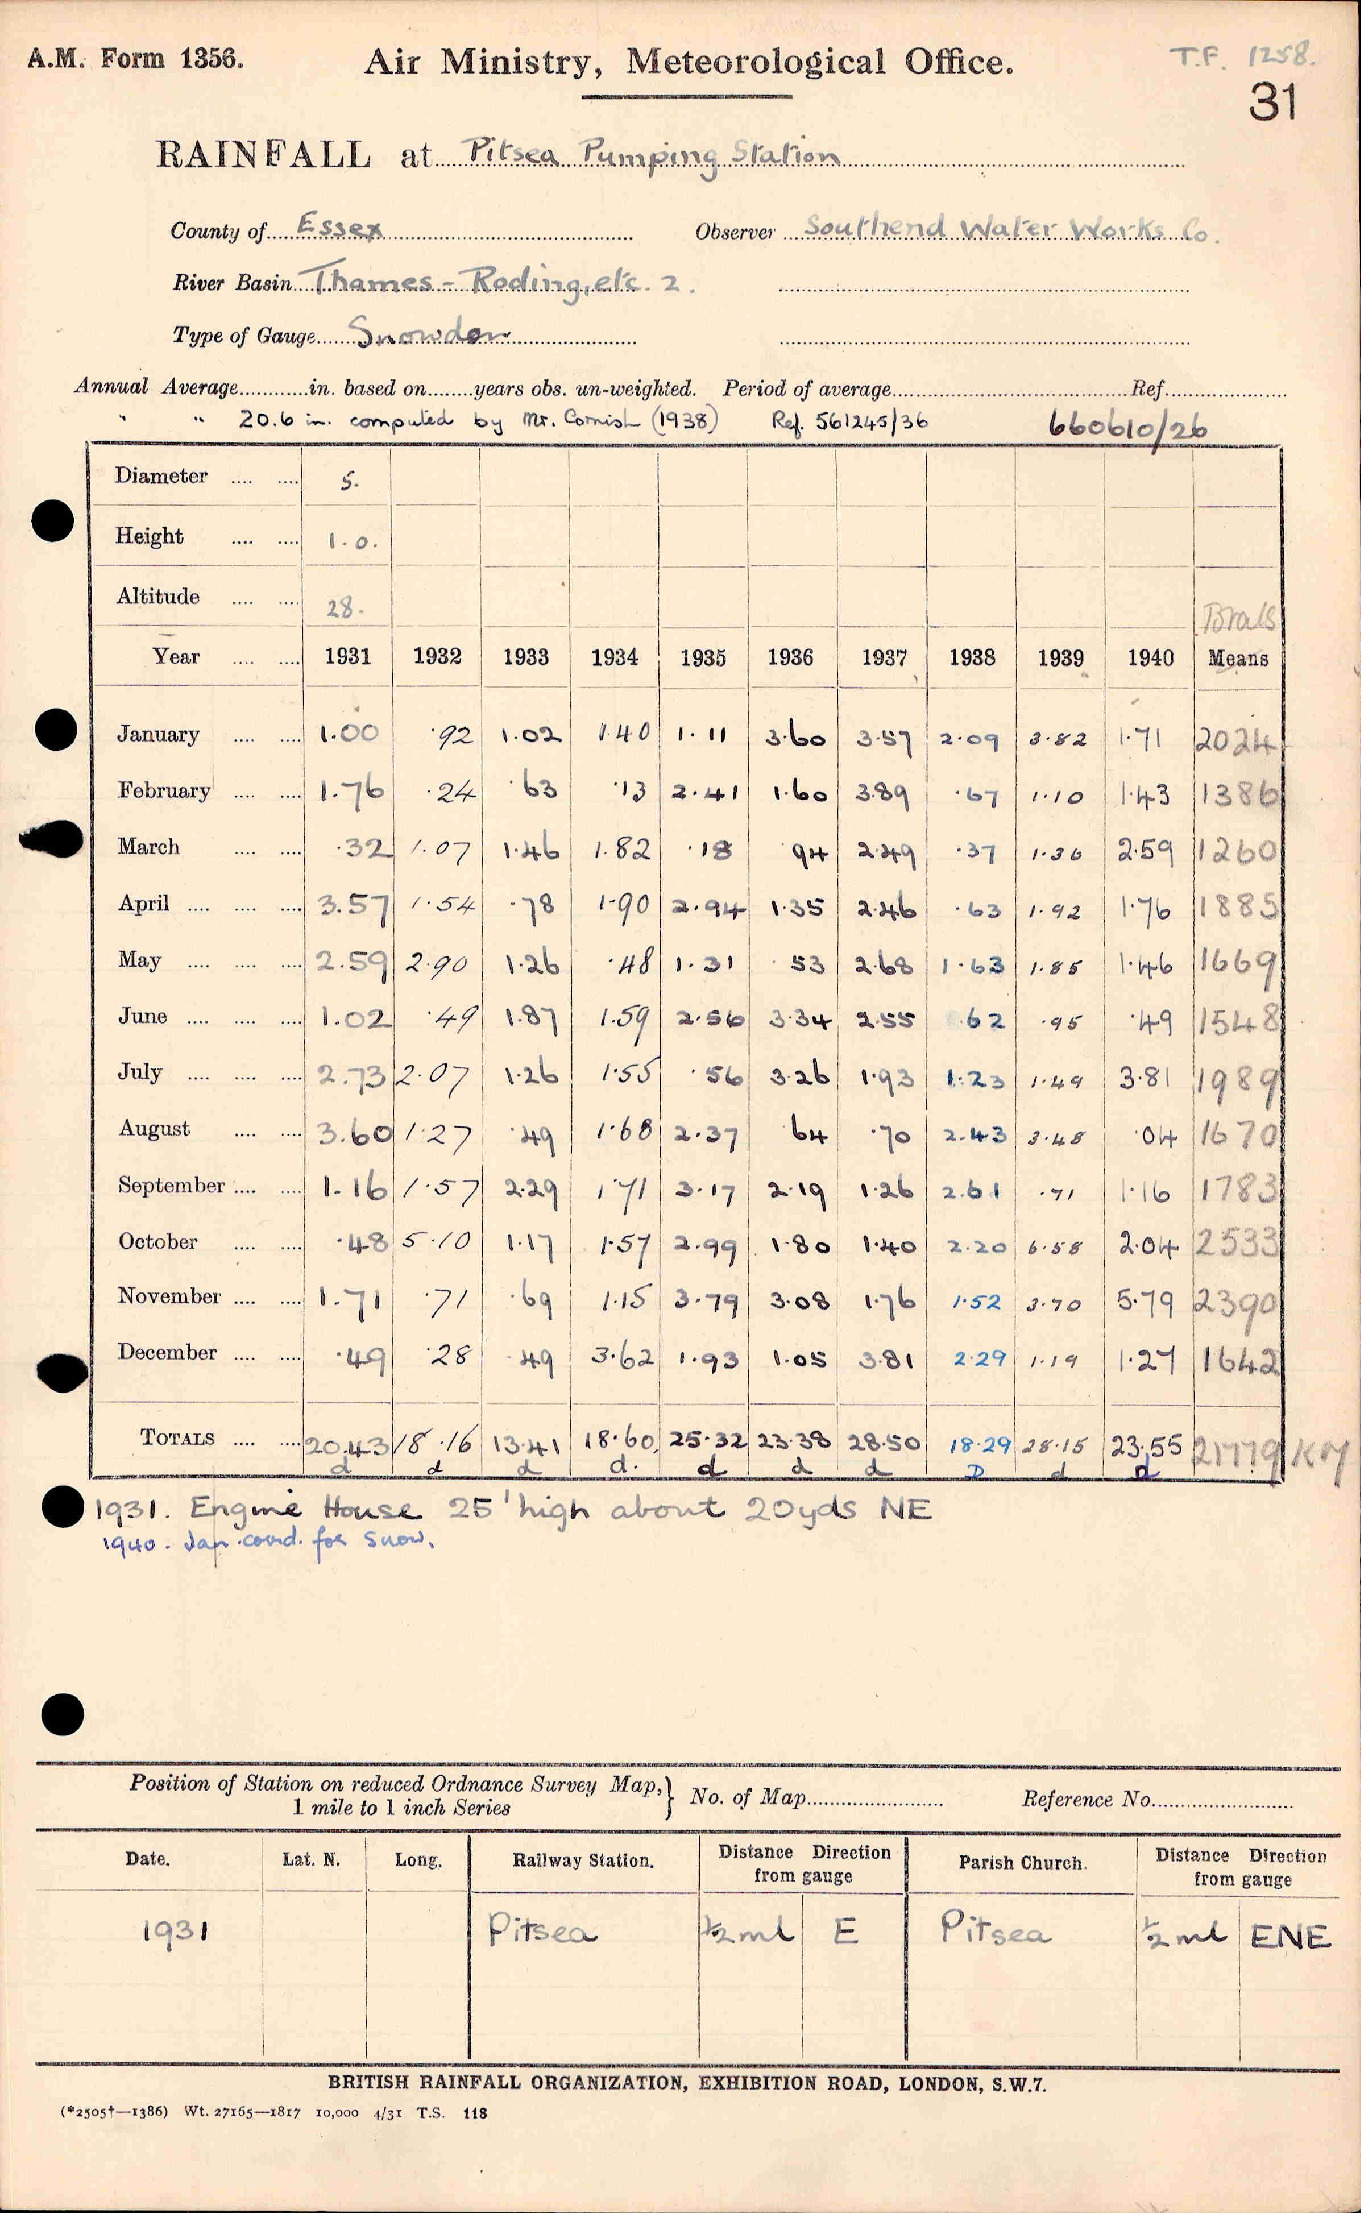 A.M. Form 1356. Air Ministry, Meteorological Office. T.F. 1258.
31
RAINFALL at Pitsea Pumping Station
County of Essex Observer Southend Water Works Co.
River Basin Thames - Roding, etc. 2.
Type of Gauge Snowdon
Annual Average in. based on years obs. un-weighted. Period of average Ref.
" " 20.6 in. computed by Mr. Cornish (1938) Ref. 561245/36 660610/26
Diameter 5.
Height 1.0.
Altitude 28.
Year 1931 1932 1933 1934 1935 1936 1937 1938 1939 1940 Means
January 1.00 .92 1.02 1.40 1.11 3.60 3.57 2.09 3.82 1.71 2024
February 1.76 .24 .63 .13 2.41 1.60 3.89 .67 1.10 1.43 1386
March .32 1.07 1.46 1.82 .18 .94 2.49 .37 1.36 2.59 1260
April 3.57 1.54 .78 1.90 2.94 1.35 2.46 .63 1.92 1.76 1885
May 2.59 2.90 1.26 .48 1.31 .53 2.68 1.63 1.85 1.46 1669
June 1.02 .49 1.87 1.59 2.56 3.34 2.55 .62 .95 .49 1548
July 2.73 2.07 1.26 1.55 .56 3.26 1.93 1.23 1.49 3.81 1989
August 3.60 1.27 .49 1.68 2.37 .64 .70 2.43 3.48 .04 1670
September 1.16 1.57 2.29 1.71 3.17 2.19 1.26 2.61 .71 1.16 1783
October .48 5.10 1.17 1.57 2.99 1.80 1.40 2.20 6.58 2.04 2533
November 1.71 .71 .69 1.15 3.79 3.08 1.76 1.52 3.70 5.79 2390
December .49 .28 .49 3.62 1.93 1.05 3.81 2.29 1.19 1.27 1642
TOTALS 20.43 18.16 13.41 18.60 25.32 23.38 28.50 18.29 28.15 23.55 21779
d d d d. d d d D d d
1931. Engine House 25' high about 20yds NE
1940. Jan. covd. for snow.
Position of Station on reduced Ordnance Survey Map, } No. of Map Reference No.
1 mile to 1 inch Series
Date. Lat. N. Long. Railway Station. Distance Direction from gauge Parish Church. Distance Direction from gauge
1931 Pitsea ½ ml E Pitsea ½ ml ENE
BRITISH RAINFALL ORGANIZATION, EXHIBITION ROAD, LONDON, S.W.7.
(*2505†—1386) Wt. 27165—1817 10,000 4/31 T.S. 118